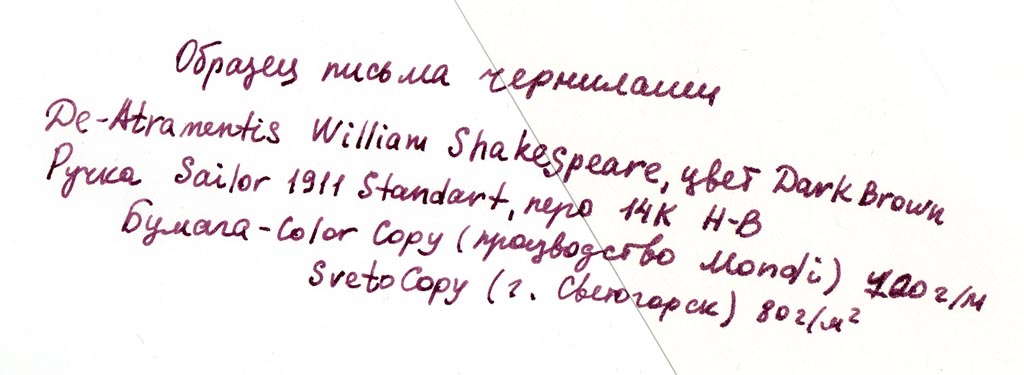 Образец письма чернилами
De-Atramentis William Shakespeare, цвет Dark Brown
Ручка Sailor 1911 Standart, перо 14K H-B
Бумага-Color Copy (производство Mondi) г/м
SvetoCopy (г. Светогорск) 80г/м²